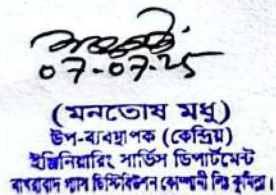 07-07-25
(মনতোষ মধু)
উপ-ব্যবস্থাপক (কেন্দ্রিয়)
ইঞ্জিনিয়ারিং সার্ভিস ডিপার্টমেন্ট
বাখরাবাদ গ্যাস ডিস্ট্রিবিউশন কোম্পানী লিঃ কুমিল্লা